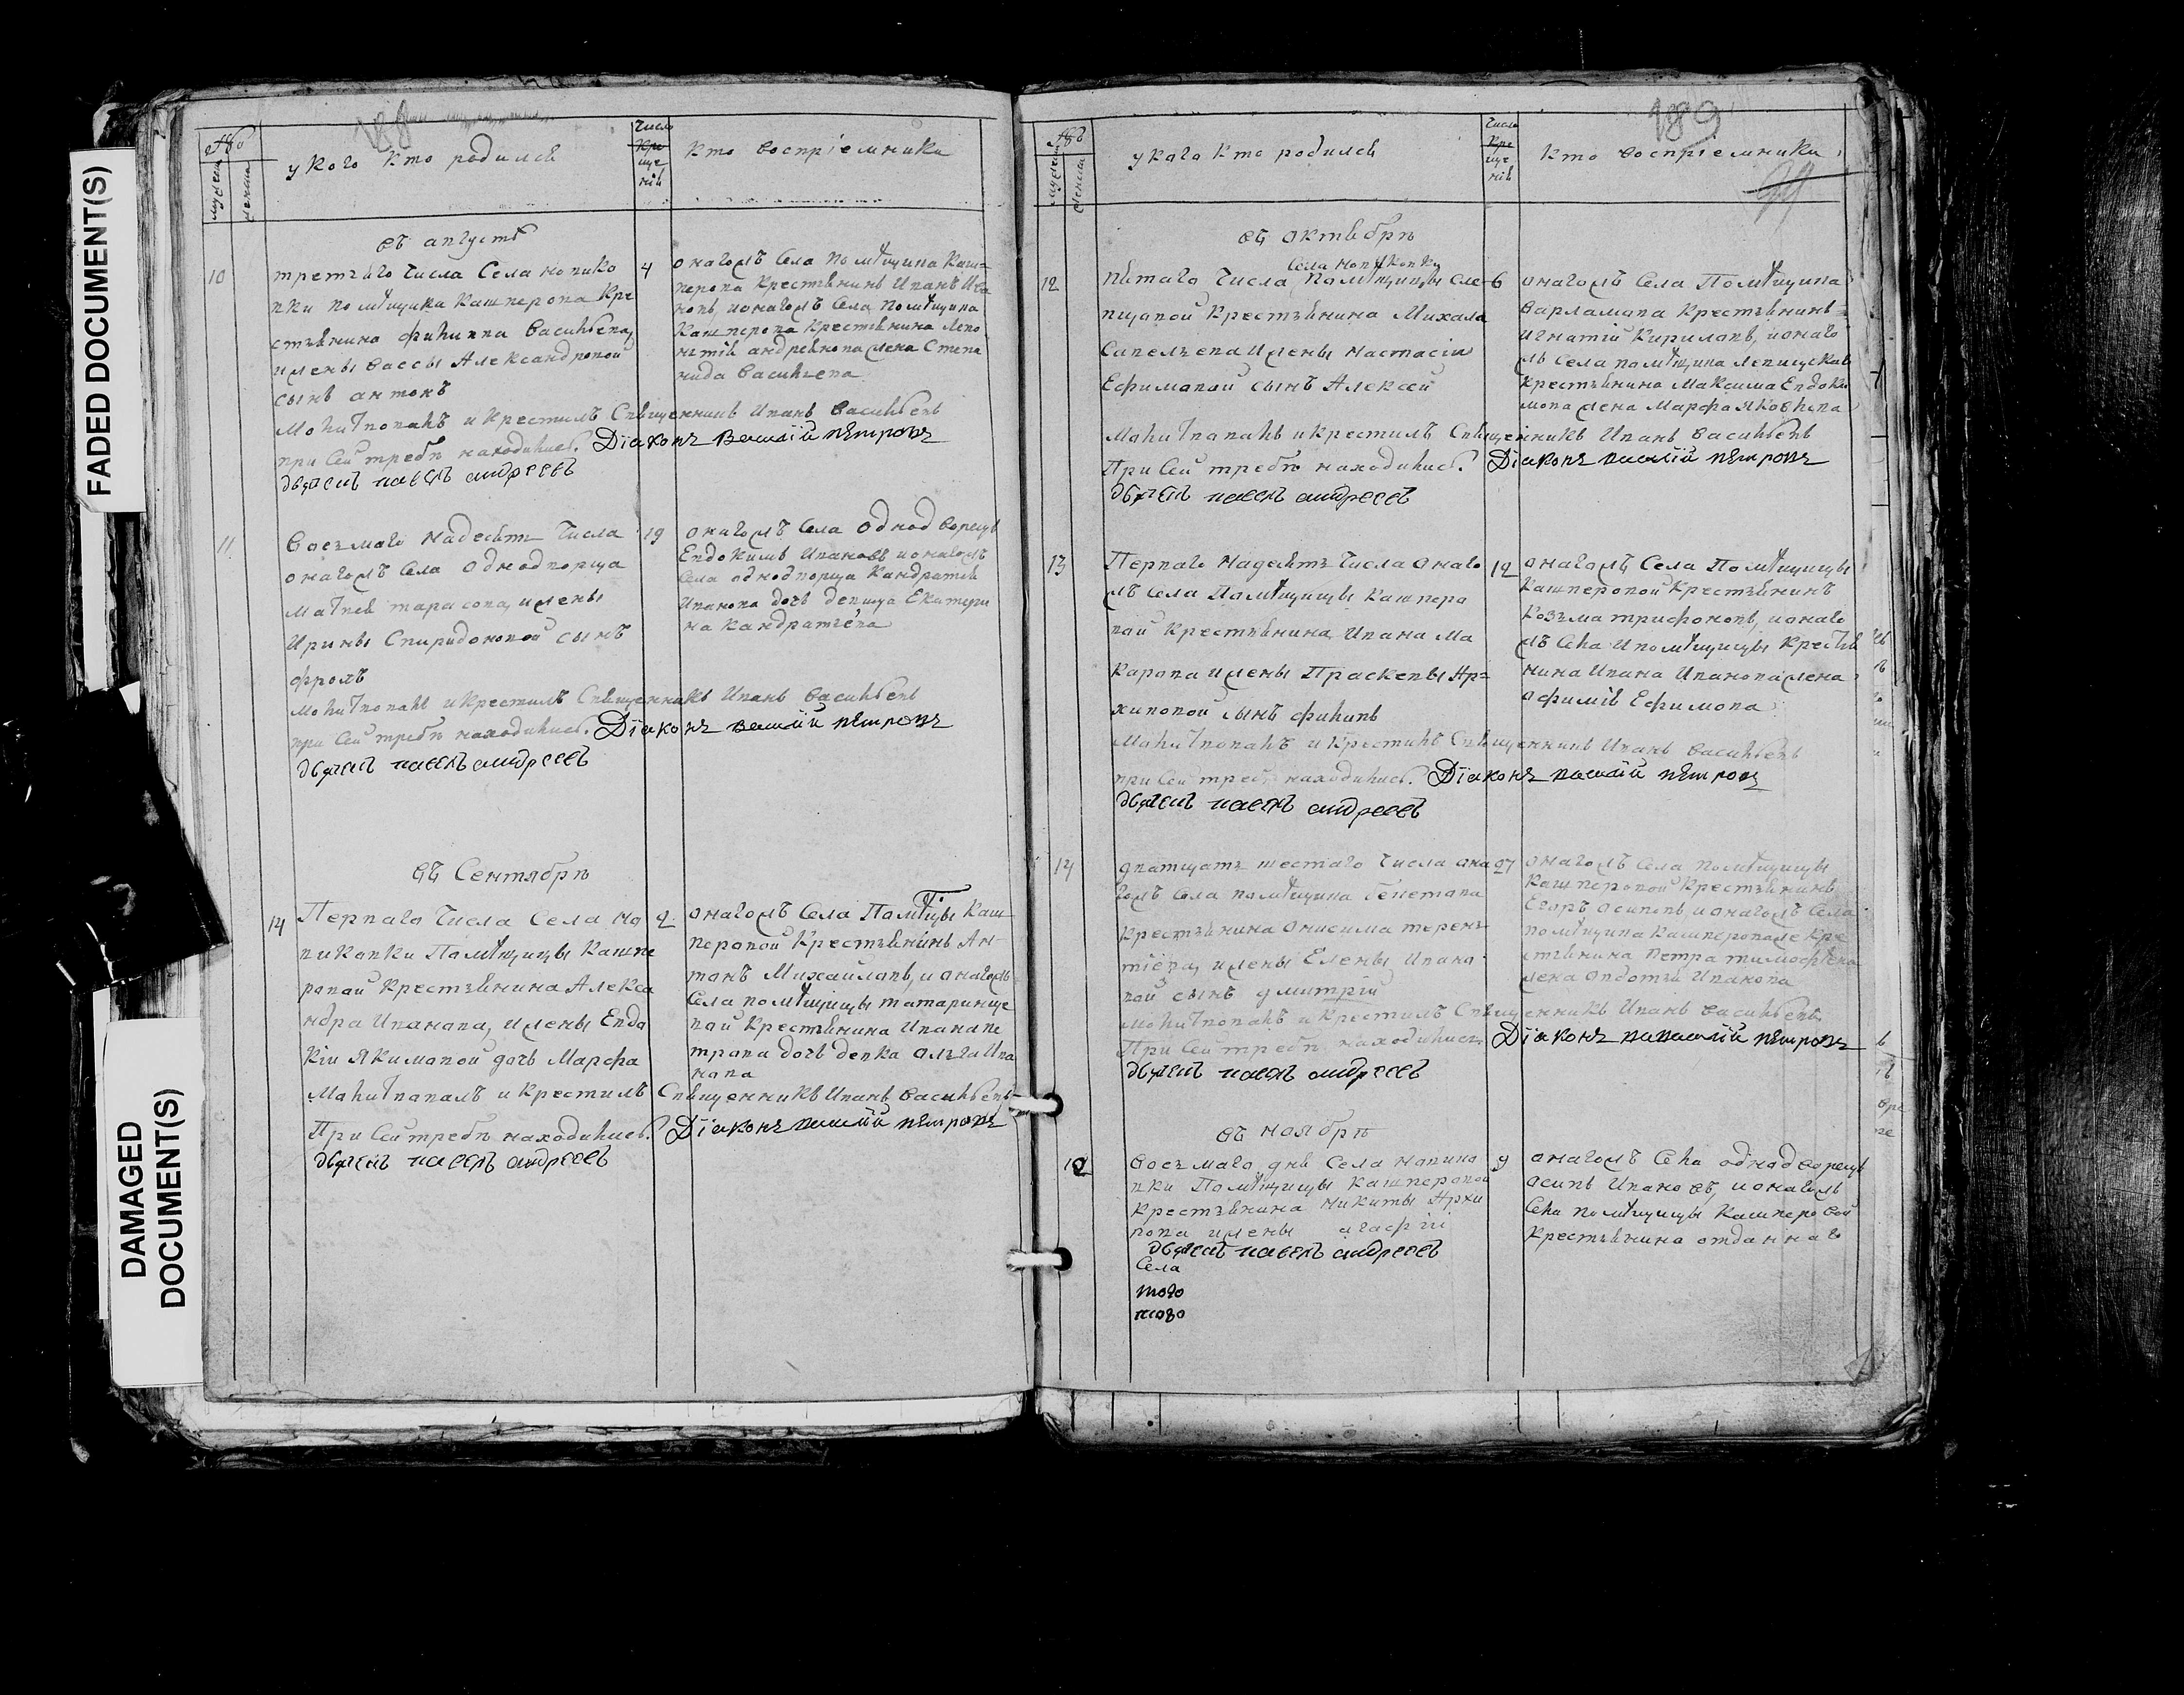 FADED DOCUMENT(S)
DAMAGED
DOCUMENT(S)
188
№
мужеска
женска
у кого кто родился
число
кре
ще
нія
кто воспріемники
въ августѣ
10
третьяго числа Села новико
вки помѣщика Кашперова Кре
стьянина филиппа Васильева,
и жены вассы Александровой
сынъ антонъ
4
онагожъ Села помѣщика Каш=
перова Крестьянинъ Иванъ Ива
новъ, ионагожъ Села помѣщика
Кашперова Крестьянина Лево
нтія андреянова жена Степа
нида Васильева
Молитвовалъ и крестилъ Священникъ Иванъ Васильевъ
при сей требѣ находились. Діаконъ василій петровъ
дьячекъ павелъ андреевъ
11
Восьмаго надесять числа
онагожъ Села однодворца
Матвея тарасова, и жены
Ирины Спиридоновой сынъ
фролъ
19
онагожъ Села однодворецъ
Евдокимъ Ивановъ ионагожъ
Села однодворца Кандратія
Иванова дочь девица Екатери
на Кандратьева
Молитвовалъ и крестилъ Священникъ Иванъ Васильевъ
при сей требѣ находились. Діаконъ василій петровъ
дьячекъ павелъ андреевъ
въ Сентябрѣ
14
Перваго числа Села но
виковки Помѣщицы Кашпе
ровой Крестьянина Алекса
ндра Иванова, и жены Евдо
кіи Якимовой дочь Марфа
2
онагожъ Села Помѣщицы Каш
перовой Крестьянинъ Ан-
тонъ Михайловъ, и онагожъ
Села помѣщицы татаринце
вой Крестьянина Ивана пе
трова дочь девка Ольга Ива
нова
Молитвовалъ и Крестилъ Священникъ Иванъ Васильевъ
При сей требѣ находились. Діаконъ василій петровъ
дьячекъ павелъ андреевъ
189
№
мужеска
женска
у кого кто родился
число
кре
ще
нія
кто воспріемники
въ октябрѣ
Села новиковки
12
пятаго числа Помѣщицы Сле-
пцовой Крестьянина Михала
Савельева и жены настасіи
Ефимовой сынъ Алексей
6
онагожъ Села Помѣщика
Варламова Крестьянинъ=
игнатій Кириловъ, ионаго
жъ Села помѣщика
Крестьянина Максима Евдоки
мова жена Марфа Яковлева
Молитвовалъ и крестилъ Священникъ Иванъ Васильевъ
При сей требѣ находились. Діаконъ василій петровъ
дьячекъ павелъ андреевъ
13
Перваго надесять числа онаго
жъ Села Помѣщицы Кашперо
вой Крестьянина Ивана Ма
карова и жены Прасковьи Ар=
хиповой сынъ филипъ
12
онагожъ Села Помѣщицы
Кашперовой Крестьянинъ
Козьма трифоновъ, ионаго
жъ Села Ипомѣщицы Крестья
нина Ивана Иванова жена
офимія Ефимова
Молитвовалъ и Крестилъ Священникъ Иванъ Васильевъ
при сей требѣ находились. Діаконъ василій петровъ
дьячекъ павелъ андреевъ
14
дватцать шестаго числа она
гожъ Села помѣщика
Крестьянина Онисима терень
тіева, и жены Елены Ивано
вой сынъ дмитрій
27
онагожъ Села помѣщицы
Кашперовой Крестьянинъ
Егоръ Осиповъ, и онагожъ Села
помѣщика Кашперова же кре
стьянина Петра тимофеева
жена авдотья Иванова
Молитвовалъ и крестилъ Священникъ Иванъ Васильевъ
При сей требѣ находились. Діаконъ василій петровъ
дьячекъ павелъ андреевъ
въ ноябрѣ
восьмаго дня Села новико
вки Помѣщицы Кашперовой
Крестьянина Никиты Архи
пова и жены агафіи
9
онагожъ Села однодворецъ
осипъ Ивановъ, ионагожъ
Села помѣщицы Кашперовой
Крестьянина отданнаго
дьячекъ павелъ андреевъ
Села
того